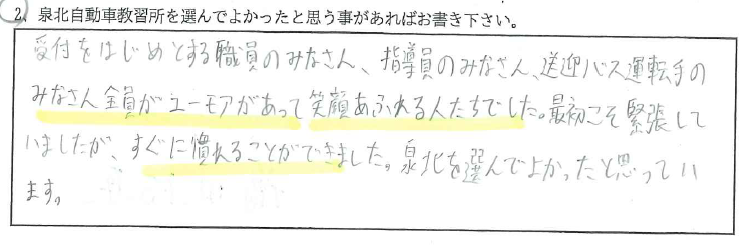 2、泉北自動車教習所を選んでよかったと思う事があればお書き下さい。
受付をはじめとする職員のみなさん、指導員のみなさん、送迎バス運転手の
みなさん全員がユーモアがあって笑顔あふれる人たちでした。最初こそ緊張して
いましたが、すぐに慣れることができました。泉北を選んでよかったと思ってい
ます。